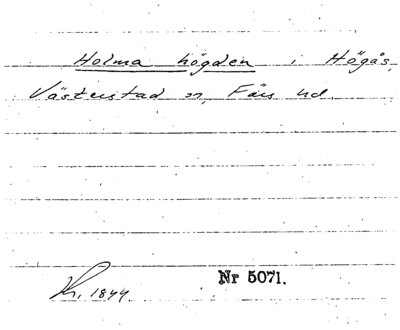 Holma högden i Högås,
Västerstad sn, Färs hd.
Kr. 1844.
Nr 5071.